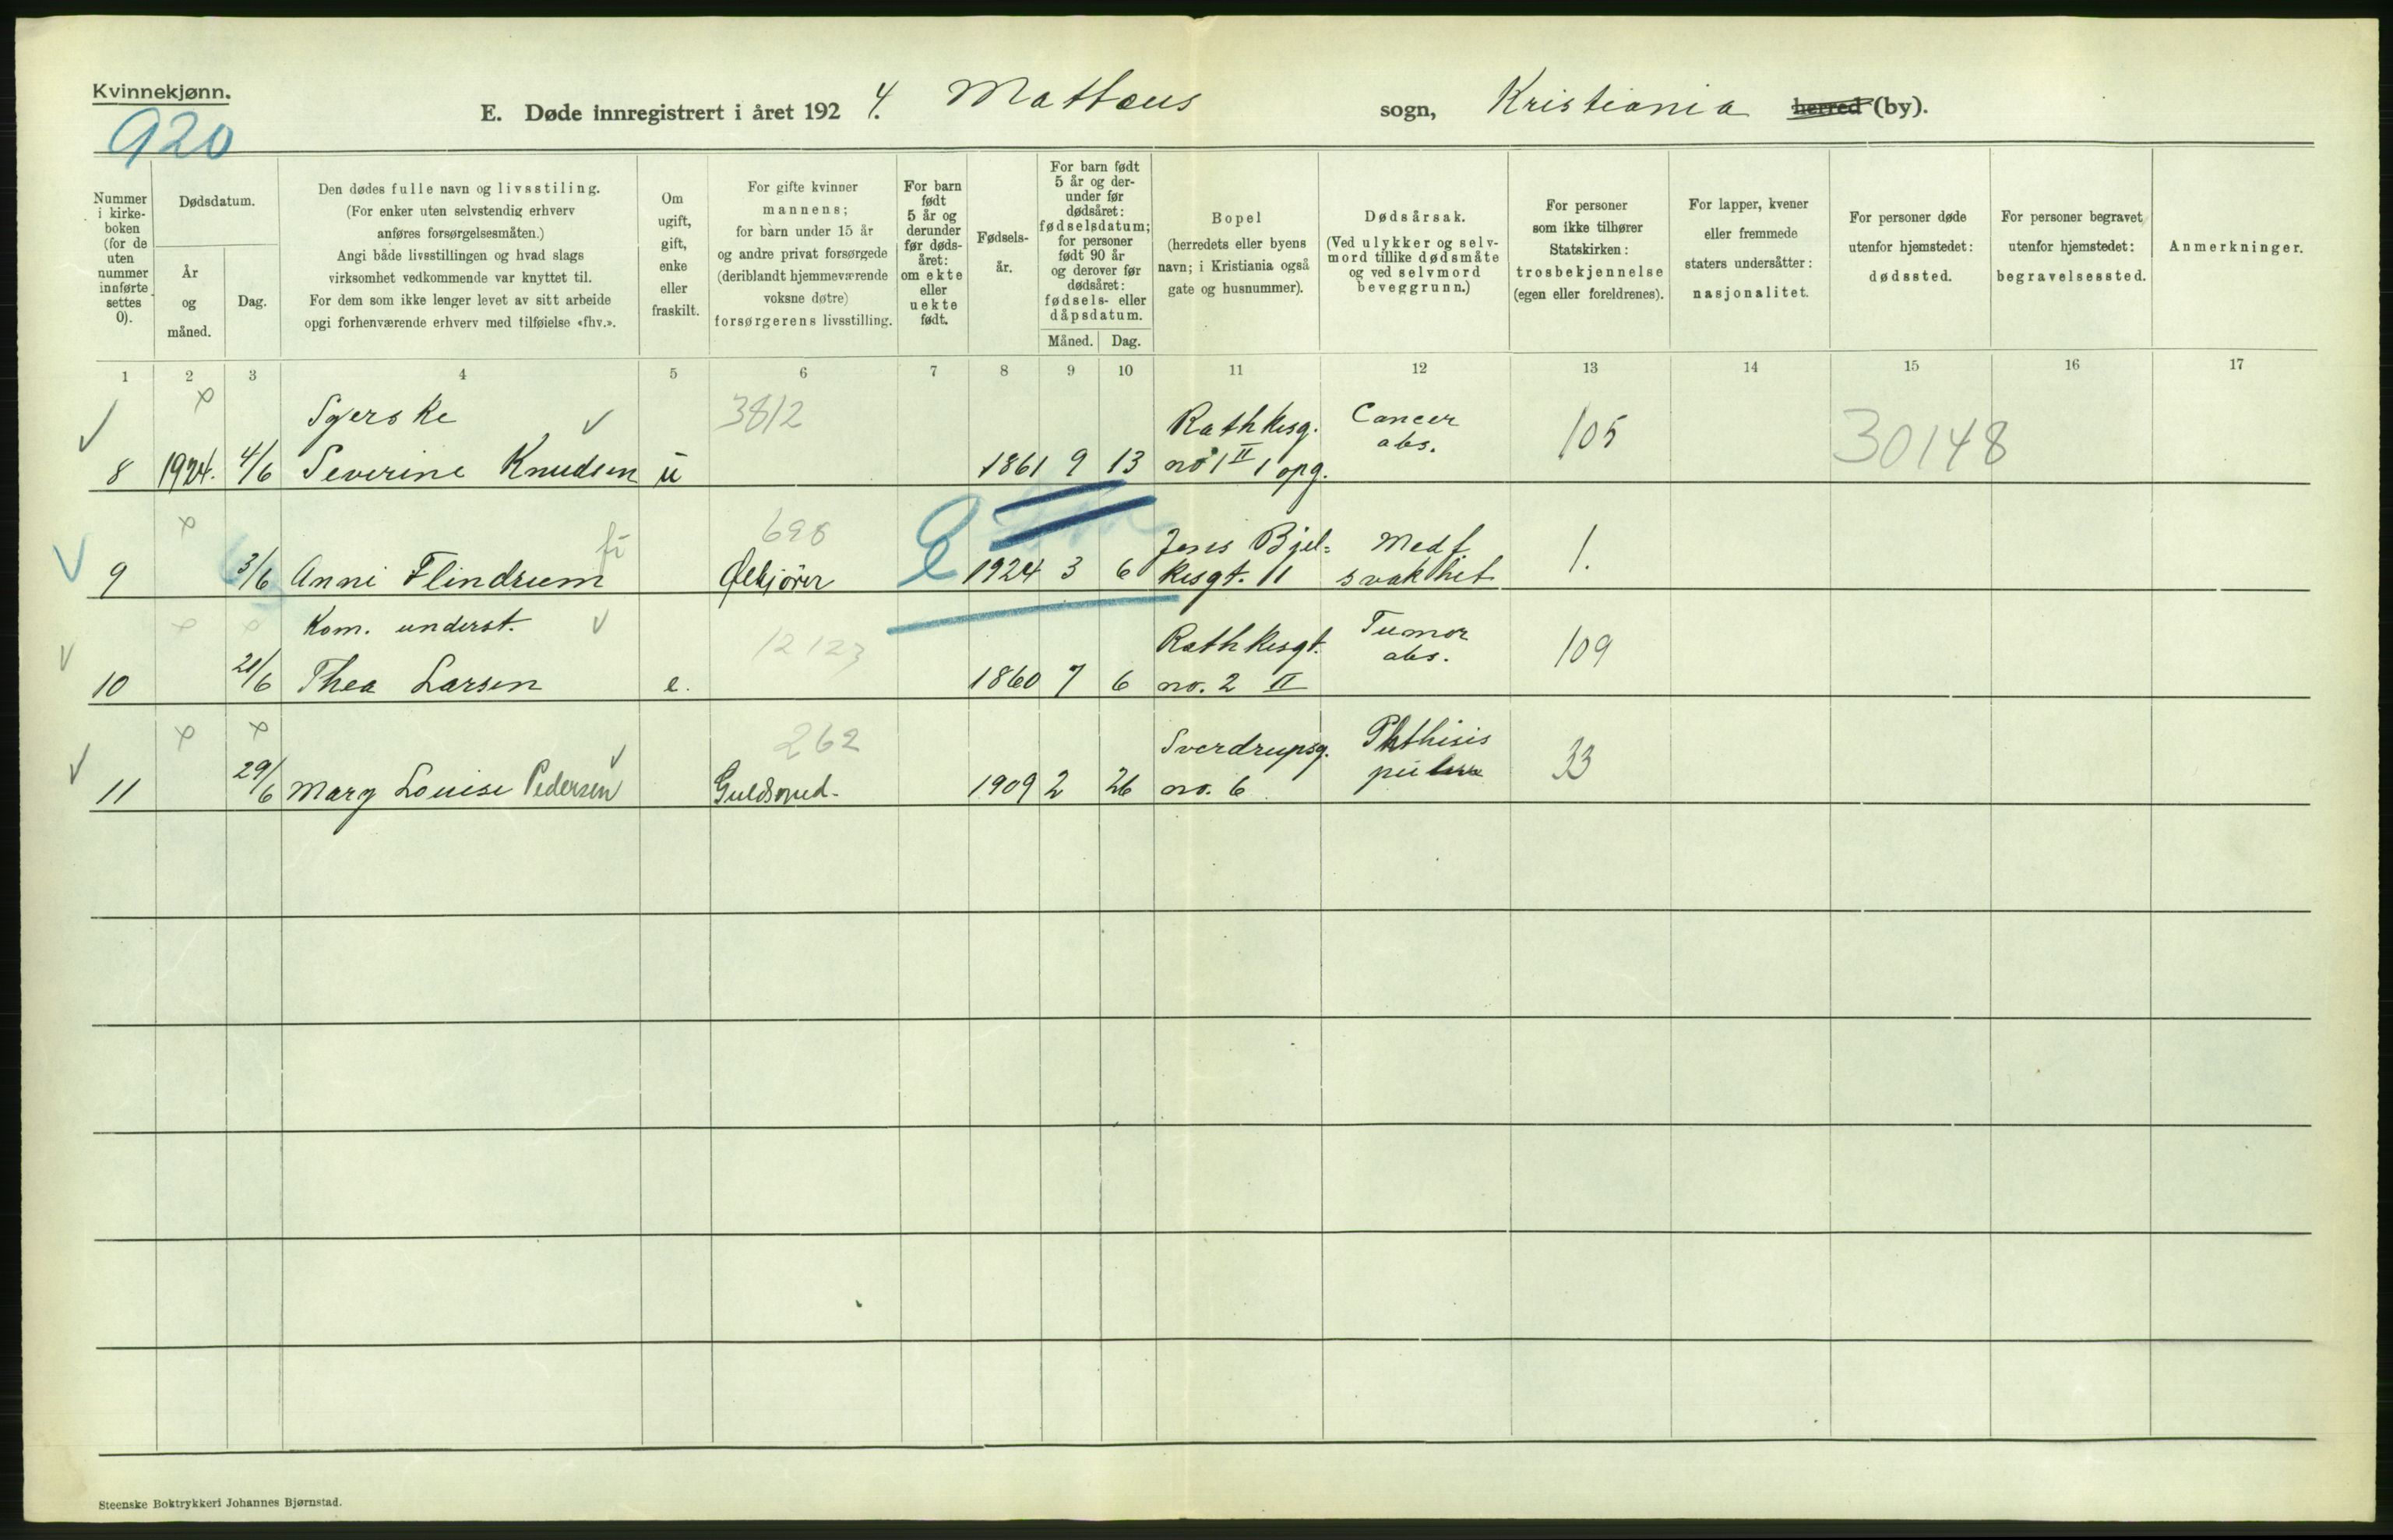 Kvinnekjønn.
920
E. Døde innregistrert i året 1924. Mattæus sogn, Kristiania herred (by).
Nummer i kirke-boken (for de uten nummer innførte settes 0).
Dødsdatum.
År og måned.
Dag.
Den dødes fulle navn og livsstiling.
(For enker uten selvstendig erhverv
anføres forsørgelsesmåten.)
Angi både livsstillingen og hvad slags
virksomhet vedkommende var knyttet til.
For dem som ikke lenger levet av sitt arbeide
opgi forhenværende erhverv med tilføielse «fhv.».
Om
ugift,
gift,
enke
eller
fraskilt.
For gifte kvinner
mannens;
for barn under 15 år
og andre privat forsørgede
(deriblandt hjemmeværende
voksne døtre)
forsørgerens livsstilling.
For barn
født
5 år og
derunder
før døds-
året:
om ekte
eller
uekte
født.
Fødsels-
år.
For barn født
5 år og der-
under før
dødsåret:
fødselsdatum;
for personer
født 90 år
og derover før
dødsåret:
fødsels- eller
dåpsdatum.
Måned. Dag.
Bopel
(herredets eller byens
navn; i Kristiania også
gate og husnummer).
Dødsårsak.
(Ved ulykker og selv-
mord tillike dødsmåte
og ved selvmord
beveggrunn.)
For personer
som ikke tilhører
Statskirken:
trosbekjennelse
(egen eller foreldrenes).
For lapper, kvener
eller fremmede
staters undersåtter:
nasjonalitet.
For personer døde
utenfor hjemstedet:
dødssted.
For personer begravet
utenfor hjemstedet:
begravelsessted.
Anmerkninger.
1 2 3 4 5 6 7 8 9 10 11 12 13 14 15 16 17
Syerske 3812 Rathkesg. Cancer 105 30148
8 1924. 4/6 Severine Knudsen u 1861 9 13 no 1 II 1 opg. abs.
698 Jens Bjel= Medf. 1.
9 3/6 Anni Flindrum Ølkjører 1924 3 6 kesgt. 11 svakhet
Kom. underst. 12123 Rathkesgt. Tumor 109
10 21/6 Thea Larsen e. 1860 7 6 no. 2 II abs.
262 Sverdrupsg. Phthisis 33
11 29/6 Mary Louise Pedersen Guldsmed. 1909 2 26 no. 6
Steenske Boktrykkeri Johannes Bjørnstad.